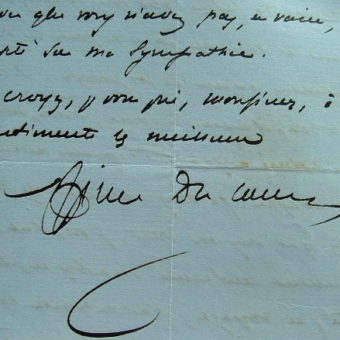 que vous n'avez pas, a voire,
sur ma sympathie.
croyez, je vous prie, monsieur, à
sentiments les meilleurs
du Camp